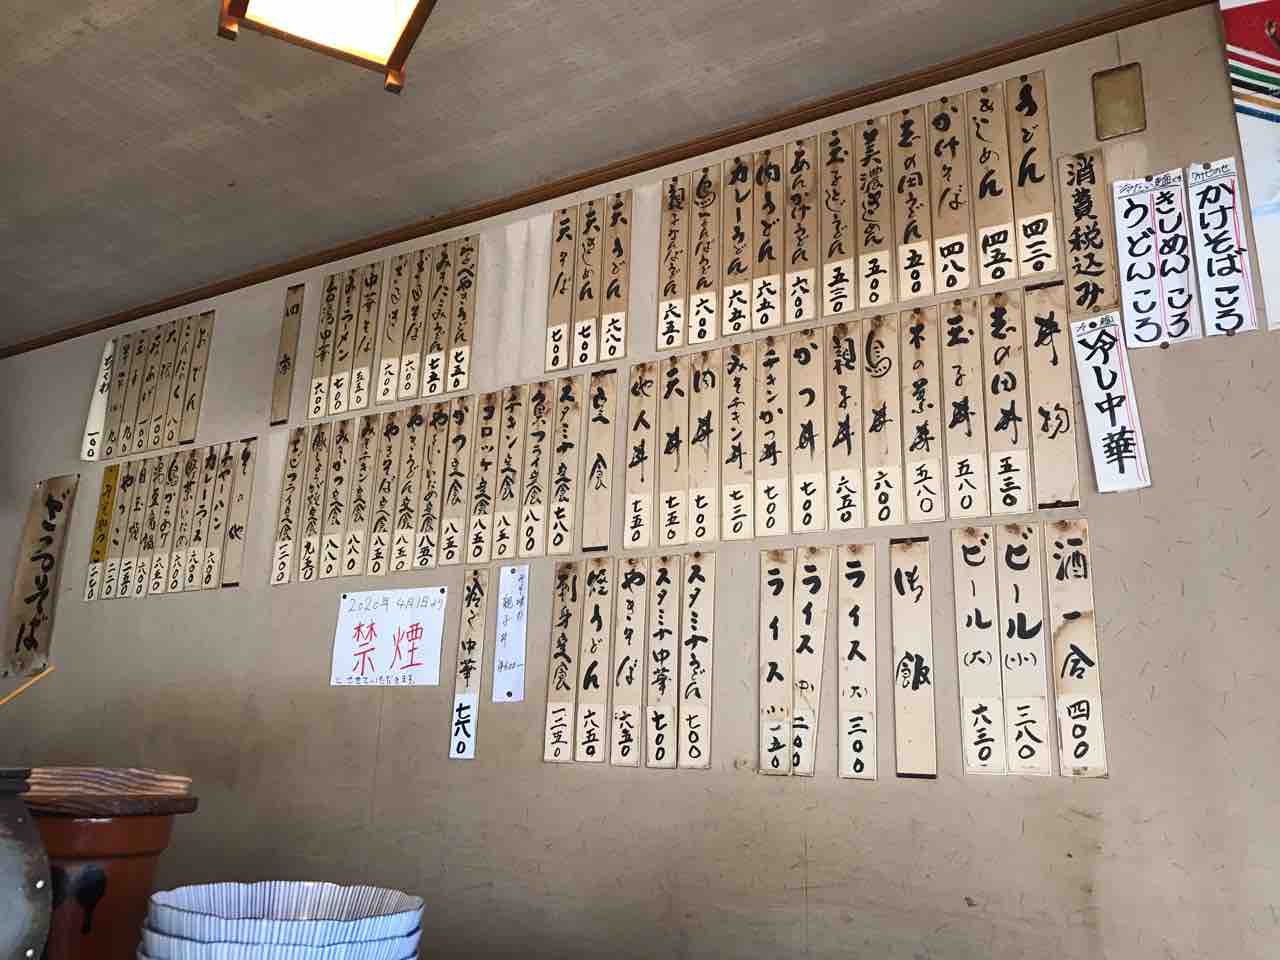 かけそば ころ
きしめん ころ
うどん ころ
冷し中華
消費税込み
うどん 四二〇
きしめん 四五〇
かけそば 四八〇
志の田うどん 五〇〇
美濃きしめん 五〇〇
玉子とじうどん 五三〇
あんかけうどん 六〇〇
肉うどん 六五〇
カレーうどん 六五〇
鳥なんばうどん 六〇〇
親子なんばうどん 六五〇
天うどん 六八〇
天きしめん 七〇〇
天そば 七〇〇
なべやきうどん 七五〇
みそにこみうどん 七五〇
ざるそば 六〇〇
ざるきし 六〇〇
中華そば 五五〇
みそラーメン 七〇〇
五目中華 六〇〇
おでん
こんにゃく 八〇
丼物
志の田丼 五三〇
玉子丼 五八〇
木の葉丼 五八〇
鳥丼 六〇〇
親子丼 六五〇
かつ丼 七〇〇
チキンかつ丼 七〇〇
みそチキン丼 七三〇
肉丼 七〇〇
天丼 七五〇
他人丼 七五〇
定食
スタミナ定食 七八〇
魚フライ定食 八〇〇
チキン定食 八五〇
コロッケ定食 八五〇
かつ定食 八五〇
やさいいため定食 八五〇
やきうどん定食 八五〇
やきそば定食 八五〇
みそチキン定食 八八〇
みそかつ定食 八八〇
しょうが焼定食 九五〇
エビフライ定食
その他
チャーハン 六〇〇
カレーライス 六五〇
野菜いため 六〇〇
鳥からあげ 六〇〇
目玉焼
やっこ
ざころそば
酒一合 四〇〇
ビール(小) 三八〇
ビール(大) 六三〇
御飯
ライス(大) 三〇〇
ライス(中) 二〇〇
ライス(小) 一五〇
スタミナうどん 七〇〇
スタミナ中華 七〇〇
やきそば 六五〇
焼うどん 六五〇
刺身定食 一二五〇
親子丼
冷し中華 七八〇
2020年4月1日より
禁煙
とさせていただきます。